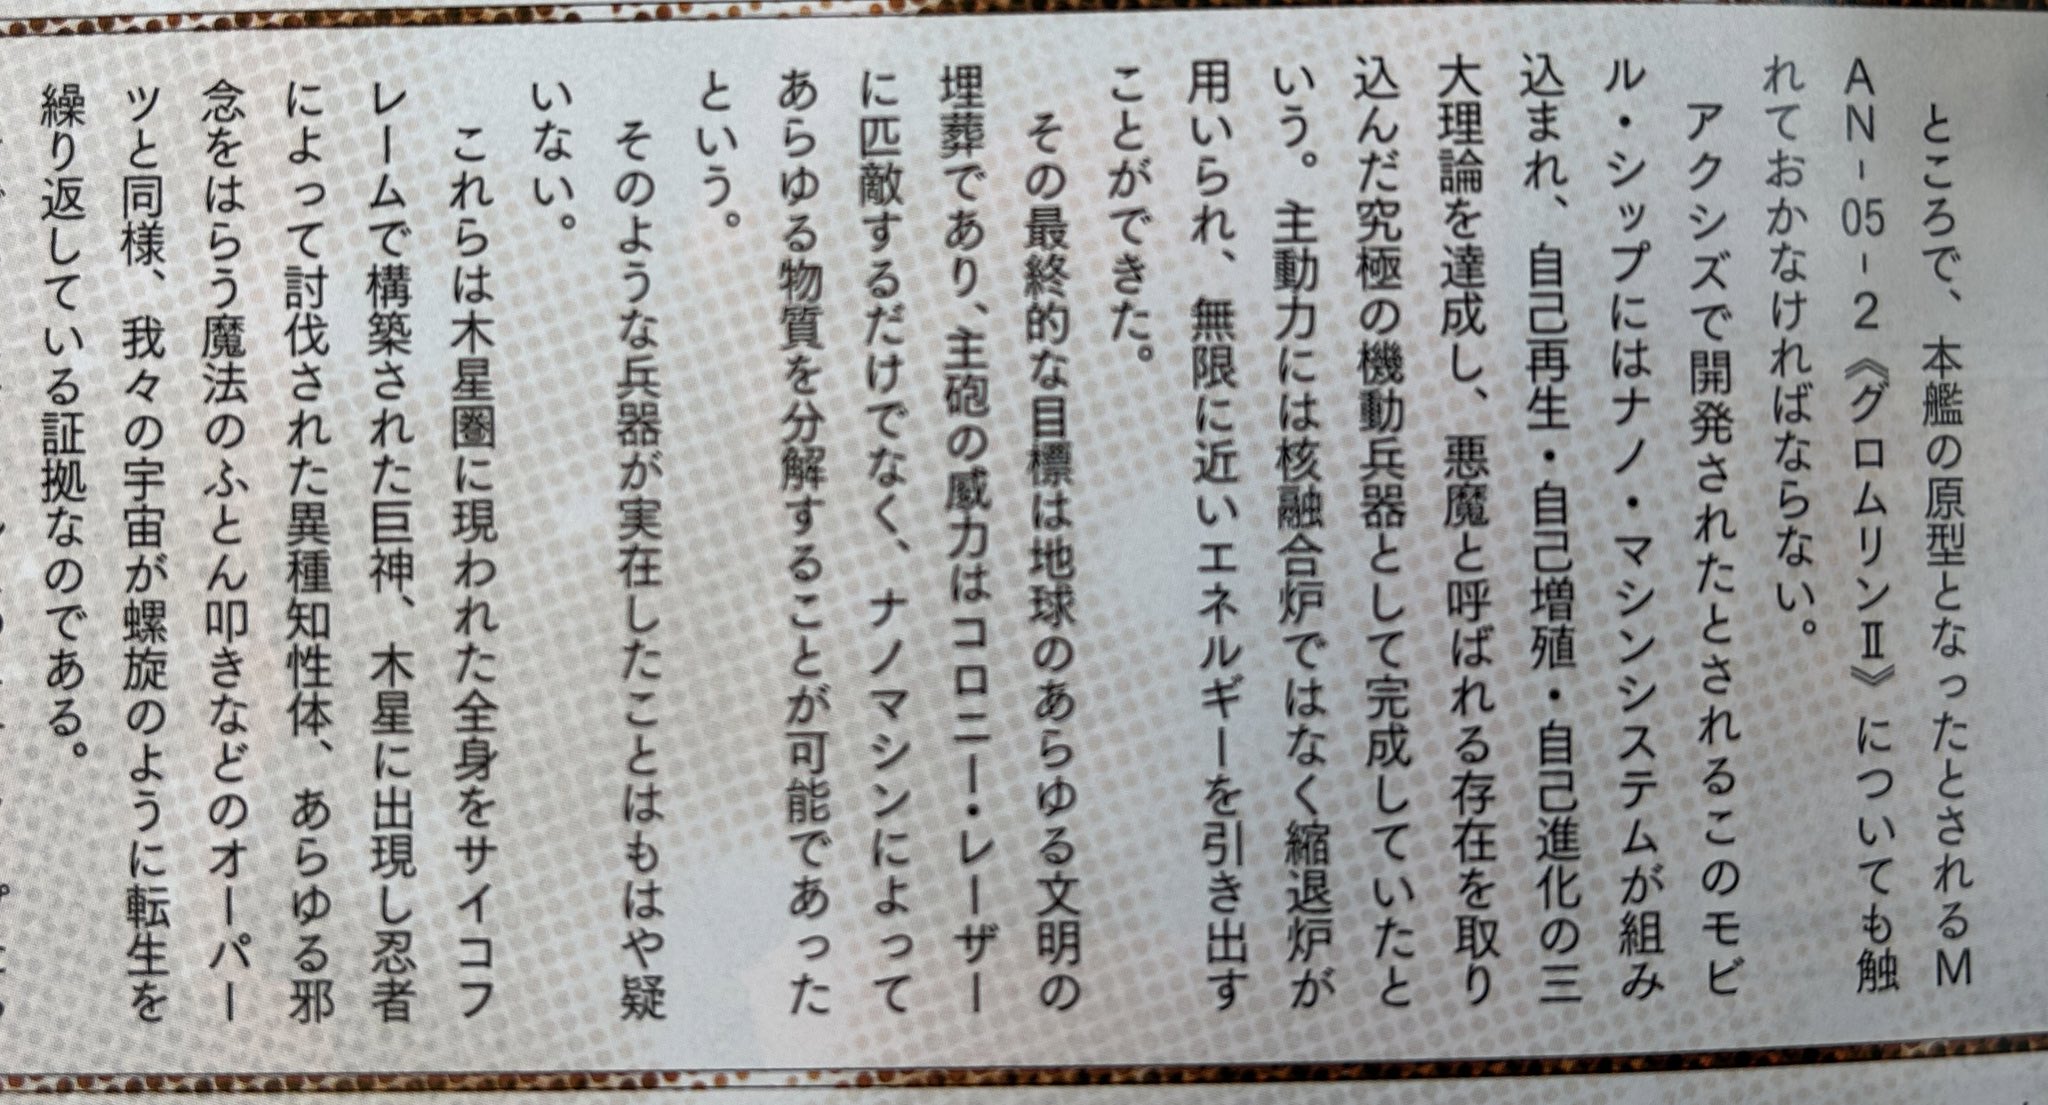 ところで、本艦の原型となったとされるM
AN-05-2《グロムリンⅡ》についても触
れておかなければならない。
アクシズで開発されたとされるこのモビ
ル・シップにはナノ・マシンシステムが組み
込まれ、自己再生・自己増殖・自己進化の三
大理論を達成し、悪魔と呼ばれる存在を取り
込んだ究極の機動兵器として完成していたと
いう。主動力には核融合炉ではなく縮退炉が
用いられ、無限に近いエネルギーを引き出す
ことができた。
その最終的な目標は地球のあらゆる文明の
埋葬であり、主砲の威力はコロニー・レーザー
に匹敵するだけでなく、ナノマシンによって
あらゆる物質を分解することが可能であった
という。
そのような兵器が実在したことはもはや疑
いない。
これらは木星圏に現われた全身をサイコフ
レームで構築された巨神、木星に出現し忍者
によって討伐された異種知性体、あらゆる邪
念をはらう魔法のふとん叩きなどのオーパー
ツと同様、我々の宇宙が螺旋のように転生を
繰り返している証拠なのである。